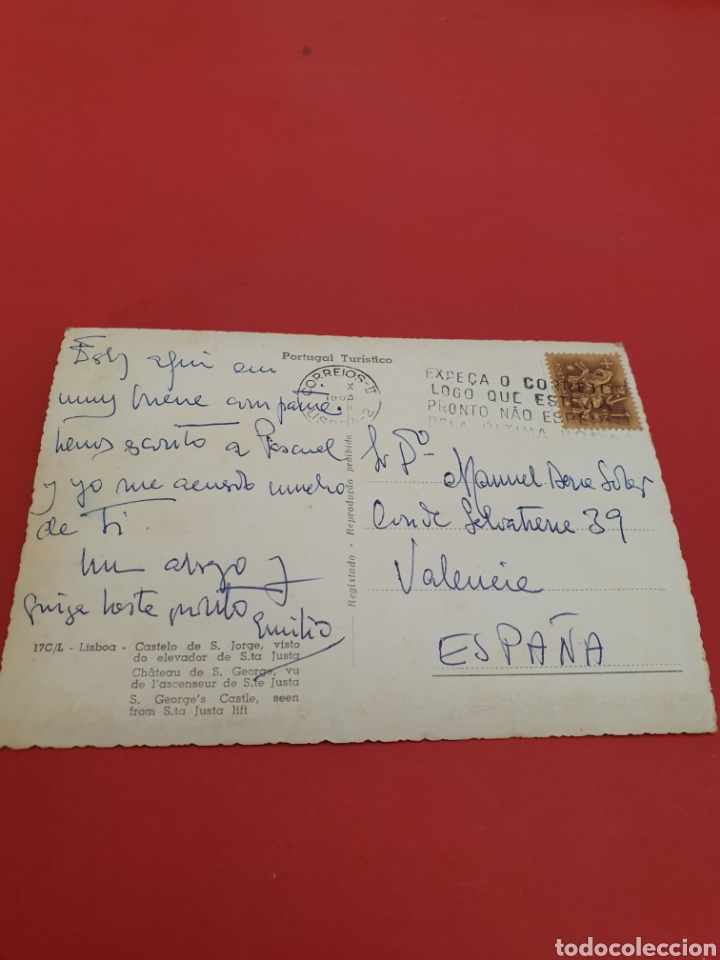 Portugal Turístico
Estoy aquí en
muy buena compañía.
hemos escrito a Pascual
y yo me acuerdo mucho
de Ti.
Un abrazo y
quizá hasta pronto
Emilio
17C/L - Lisboa - Castelo de S. Jorge, visto
do elevador de S.ta Justa
Château de S. George, vu
de l'ascenseur de S.te Justa
S. George's Castle, seen
from S.ta Justa lift
Registado - Reprodução proibida
CORREIOS
EXPEÇA O CORREIO
LOGO QUE ESTEJA
PRONTO NÃO ESPERE
PELA ÚLTIMA HORA
Sr Dº
Manuel Soler
Conde Salvatierra 39
Valencia
ESPAÑA
todocoleccion